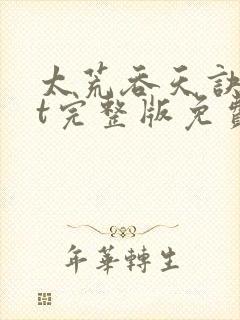 太荒吞天訣
t完整版免費
年華轉生